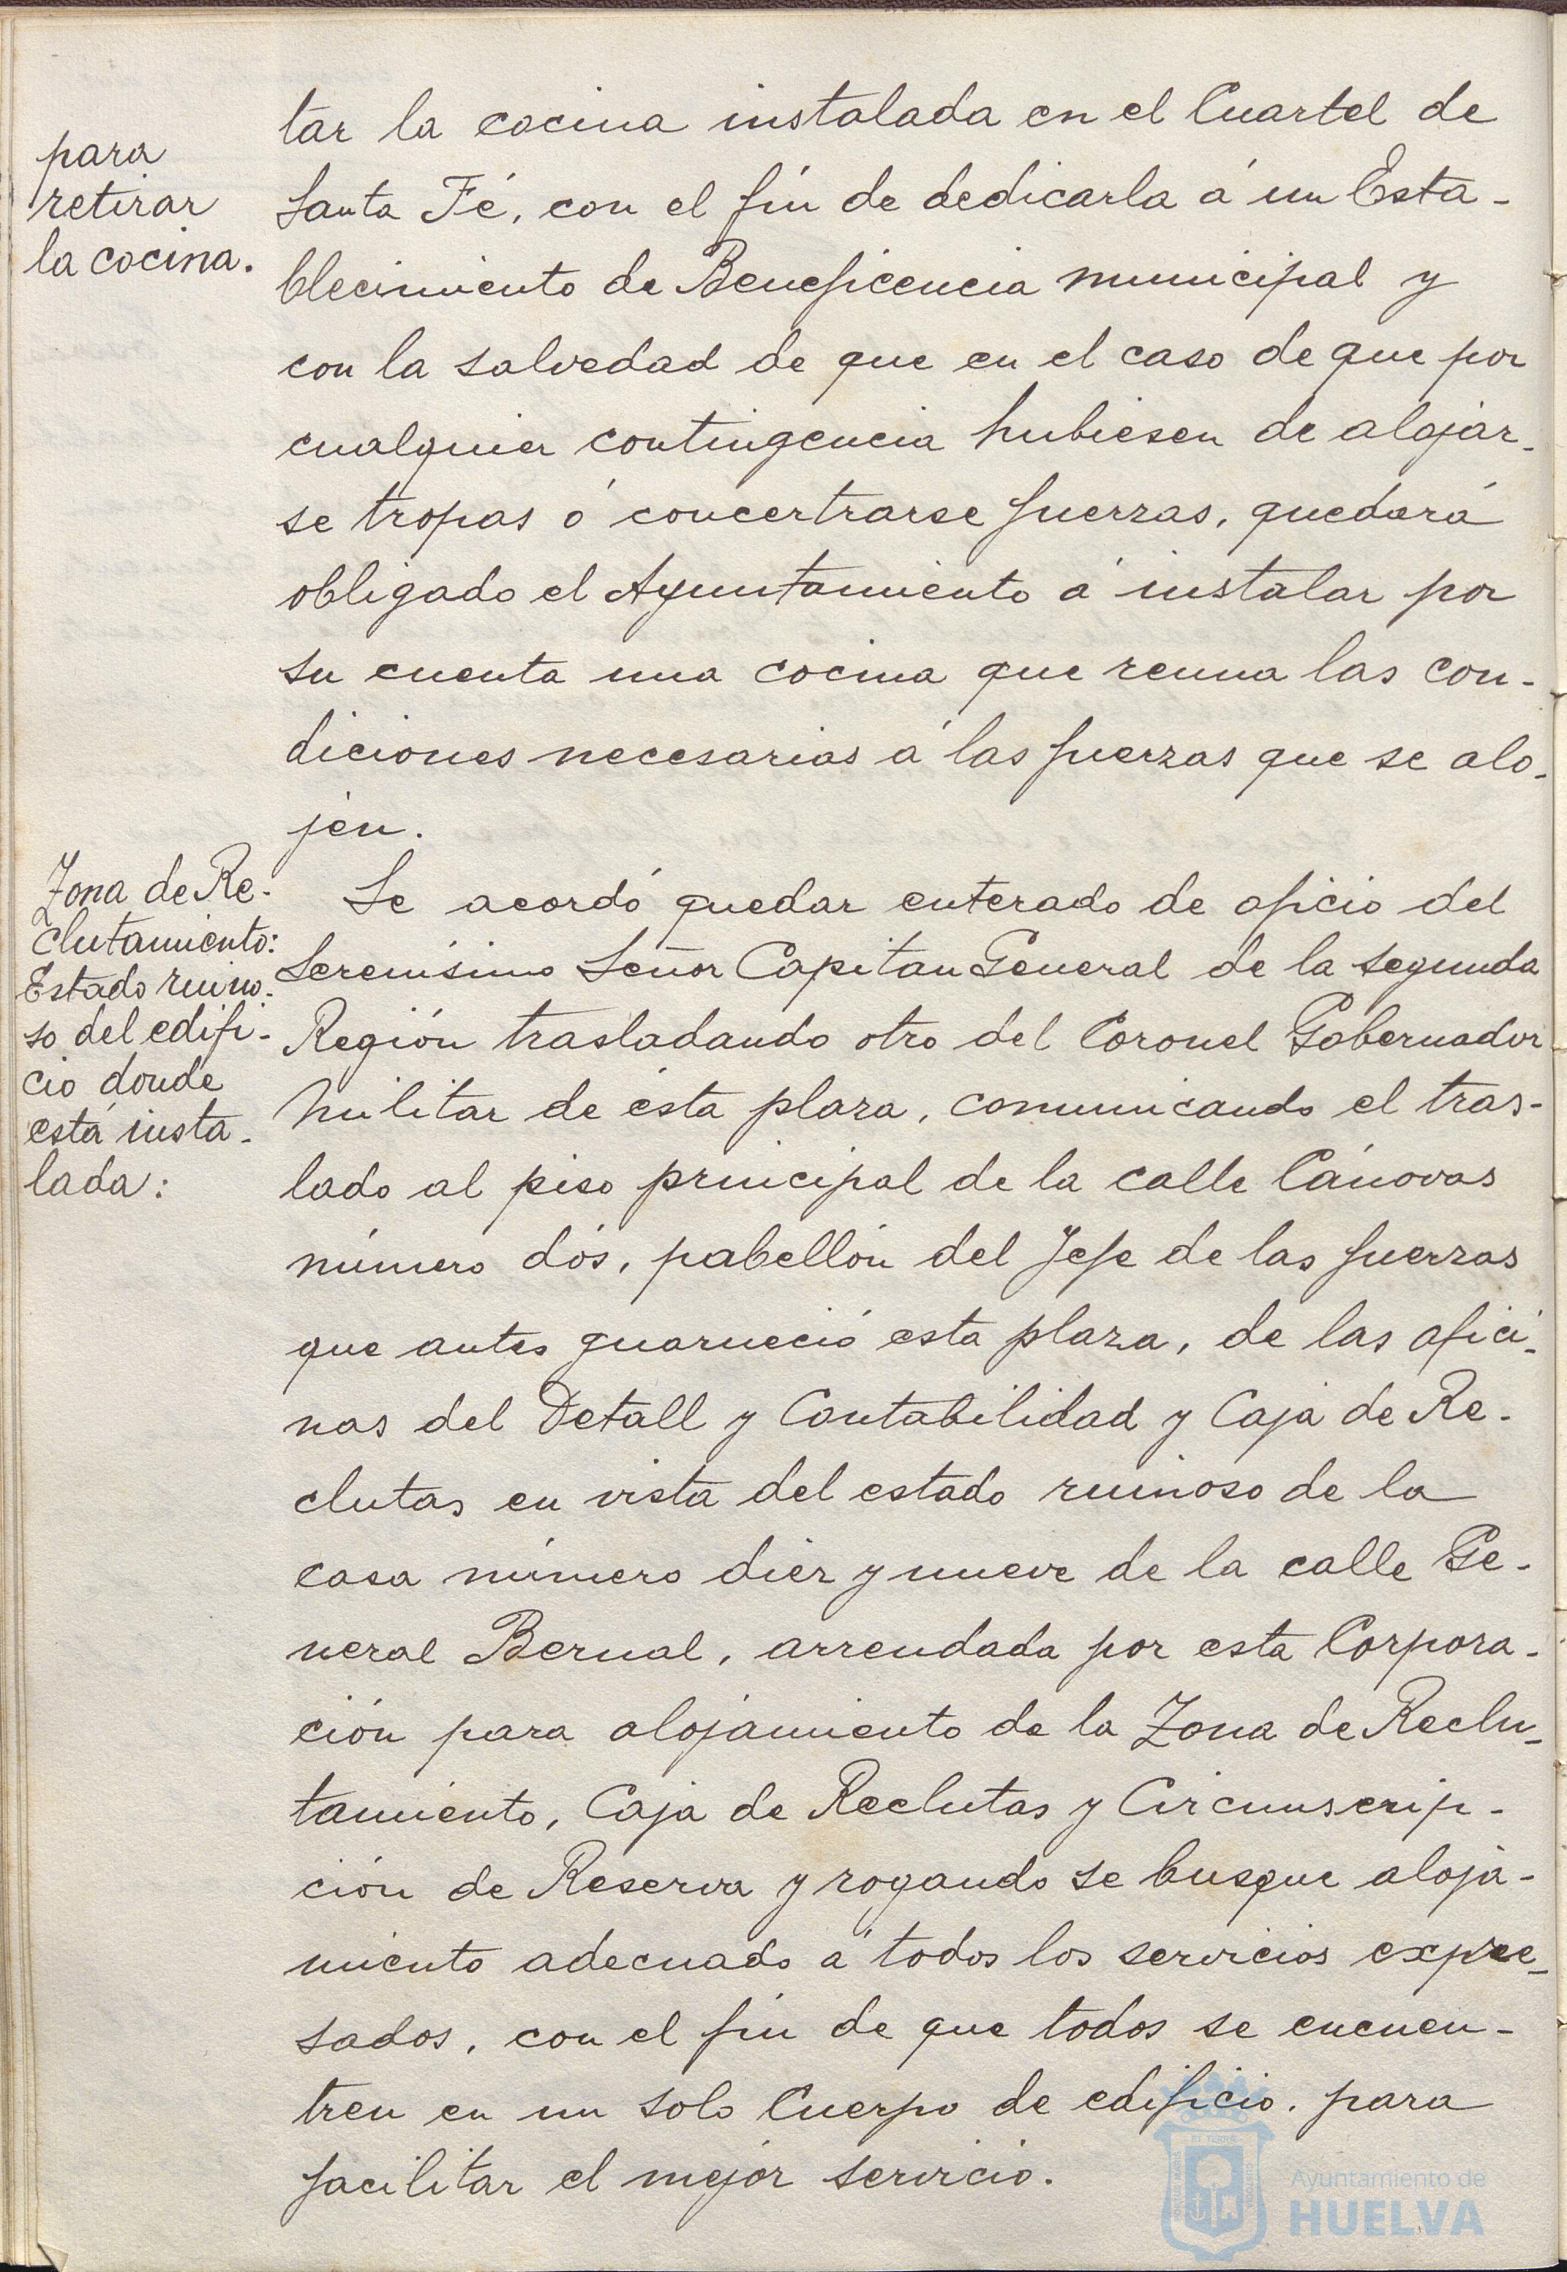 para
retirar
la cocina.
tar la cocina instalada en el Cuartel de
Santa Fé, con el fin de dedicarla á un Esta-
blecimiento de Beneficencia municipal y
con la salvedad de que en el caso de que por
cualquier contingencia hubiesen de alojar-
se tropas ó concertrarse fuerzas, quedará
obligado el Ayuntamiento á instalar por
su cuenta una cocina que reuna las con-
diciones necesarias á las fuerzas que se alo-
jen.
Zona de Re-
clutamiento:
Estado ruino-
so del edifi-
cio donde
está insta-
lada:
Se acordó quedar enterado de oficio del
Serenísimo Señor Capitan General de la segunda
Región trasladando otro del Coronel Gobernador
militar de ésta plaza, comunicando el tras-
lado al piso principal de la calle Cánovas
número dós, pabellón del Jefe de las fuerzas
que antes guarneció esta plaza, de las ofici-
nas del Detall y Contabilidad y Caja de Re-
clutas en vista del estado ruinoso de la
casa número diez y nueve de la calle Ge-
neral Bernal, arrendada por esta Corpora-
ción para alojamiento de la Zona de Reclu-
tamiento, Caja de Reclutas y Circunscrip-
ción de Reserva y rogando se busque aloja-
miento adecuado á todos los servicios expre-
sados, con el fin de que todos se encuen-
tren en un solo Cuerpo de edificio. para
facilitar el mejor servicio.
Ayuntamiento de
HUELVA